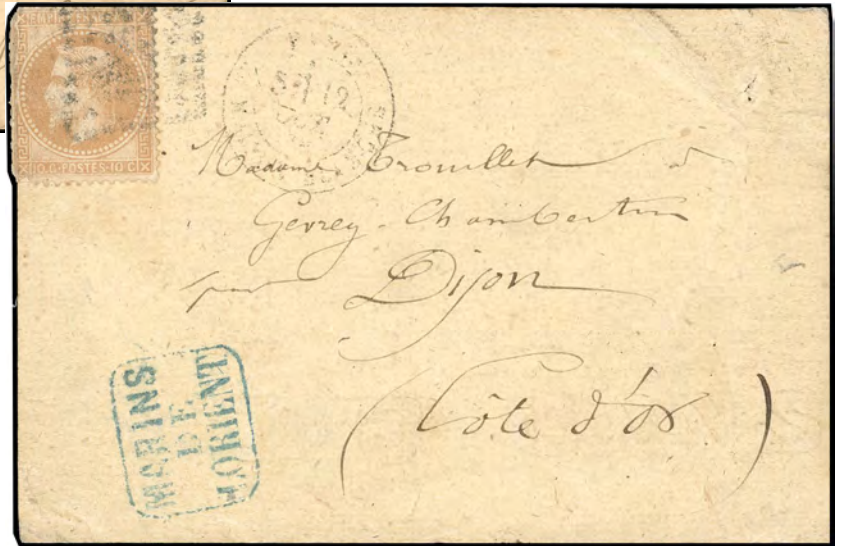 O.G. POSTES 10 C
Madame Trouillet à
Gevrey-Chambertin
par Dijon
(Côte d'Or)
MARINS
DE
LORIENT